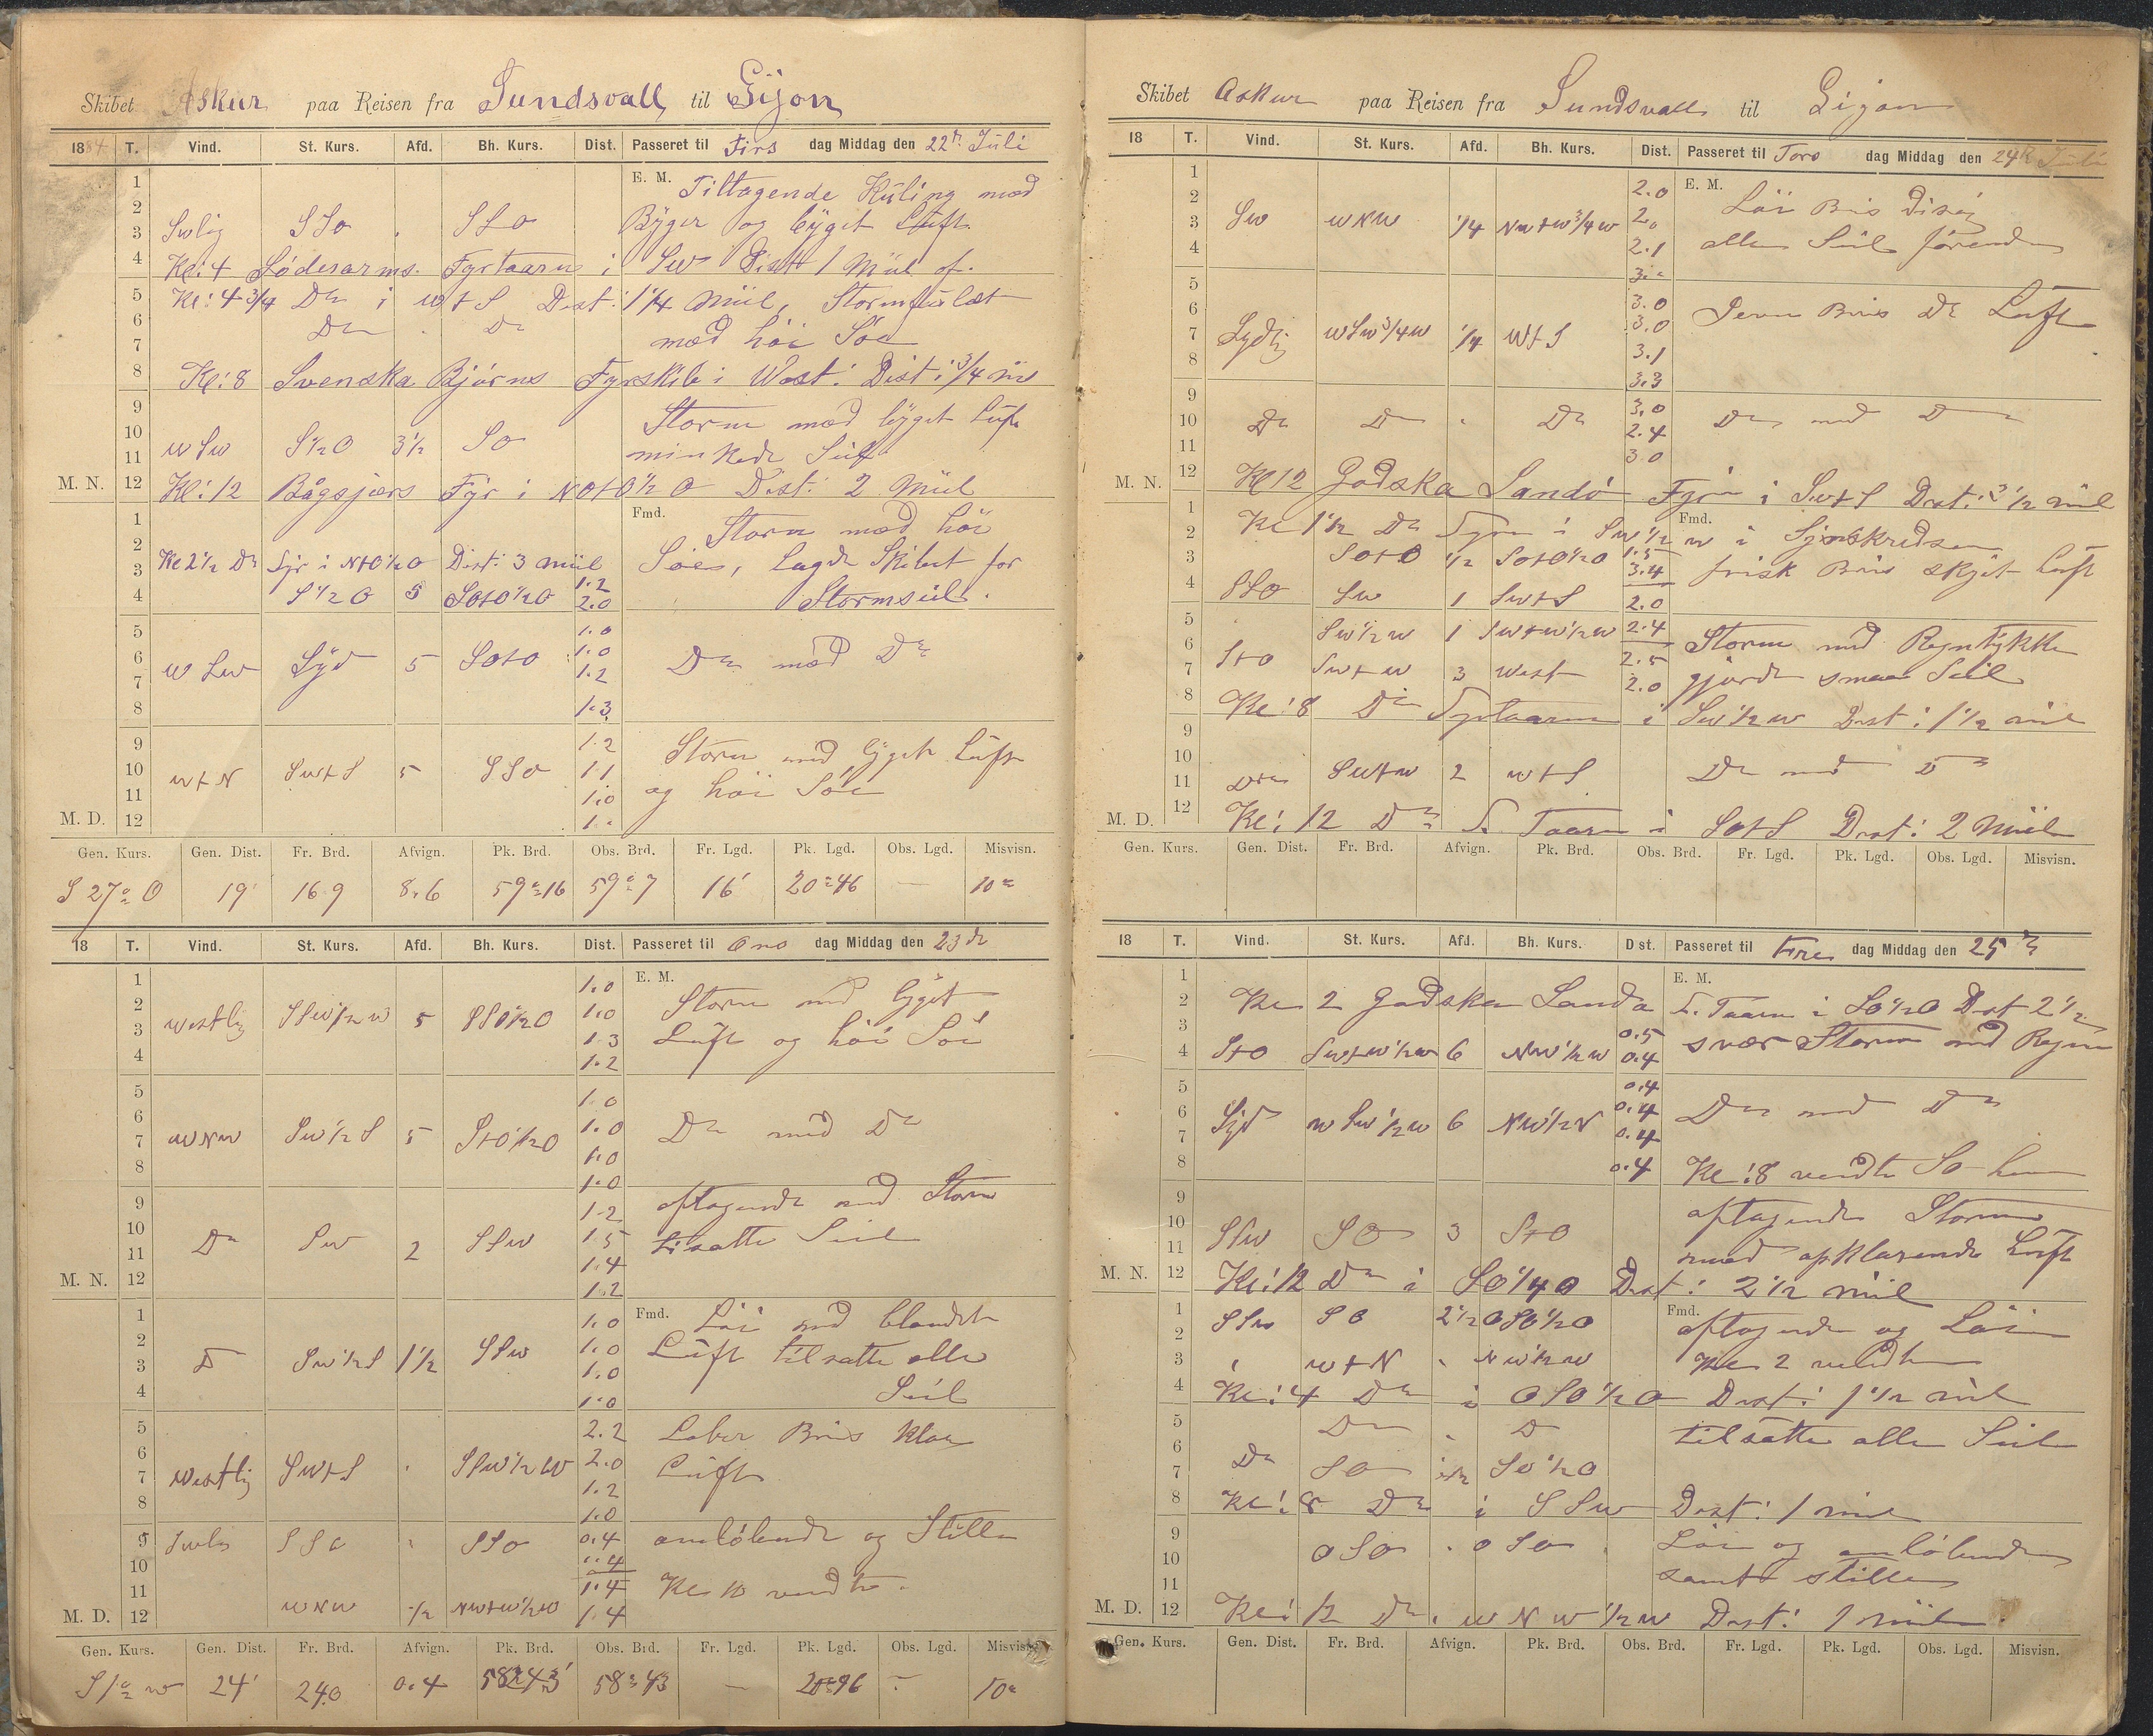 Skibet Askur paa Reisen fra Sundsvall til Gijon
1884 T. Vind. St. Kurs. Afd. Bh. Kurs. Dist. Passeret til Tirs dag Middag den 22de Juli
E. M. Tiltagende Kuling med
Swlig SSO SSO Byger og byget Luft
Kl: 4 Söderarms Fyrtaarn i SW Dist 1 Miil of.
Kl: 4 3/4 Do i W+S Dist: 1 1/4 Miil,
Do Do med höi Söe
Kl: 8 Svenska Björns Fyrskib i West: Dist: 3/4 m
Storm med byget Luft
WSW S 1/2 O 3 1/2 SO minkede Seil
M. N. 12 Kl: 12 Fyr i NO+O 1/2 O Dist: 2 Miil
Fmd. Storm med höi
Kl 2 1/2 Do Fyr i N+O 1/2 O Dist: 3 miil Söe, lagde Skibet for
S 1/2 O 5 SO+O 1/2 O 1.2 2.0 Stormseil.
1.0
WSW Syd 5 SO+O 1.0 1.2 Do med Do
1.3
1.2 Storm med byget Luft
W+N SW+S 5 SSO 1.1 og höi Söe
1.0
M. D. 12 1.
Gen. Kurs. Gen. Dist. Fr. Brd. Afvign. Pk. Brd. Obs. Brd. Fr. Lgd. Pk. Lgd. Obs. Lgd. Misvisn.
S 27° O 19' 16.9 8.6 59°16 59°7 16' 20°46 — 10°
18 T. Vind. St. Kurs. Afd. Bh. Kurs. Dist. Passeret til Ons dag Middag den 23de
1.0 E. M. Storm med byget
Westlig SSW 1/2 W 5 SSO 1/2 O 1.0 1.3 Luft og höi Söe
1.2
1.0
WNW SW 1/2 S 5 S+O 1/2 O 1.0 Do med Do
1.0
1.0
1.2 aftagende med Storm
Do SW 2 SSW 1.5 tilsatte Seil
1.4
M. N. 12 1.2
1.0 Fmd. Löi med blandet
D SW 1/2 S 1 1/2 SSW 1.0 Luft tilsatte alle
1.0 Seil
1.0
2.2 Laber Bris klar
Westlig SW+S SSW 1/2 W 2.0 Luft
1.2
1.0
SSO SSO 0.4 omlöbende og Stille
1.4 Kl 10 vendte.
M. D. 12 WNW 1/2 NW+W 1/2 W 1.4
Gen. Kurs. Gen. Dist. Fr. Brd. Afvign. Pk. Brd. Obs. Brd. Fr. Lgd. Pk. Lgd. Obs. Lgd. Misvisn.
S 1° W 24' 24.0 0.4 58°43' 58°43 — — 10°
Skibet Askur paa Reisen fra Sundsvall til Gijon
18 T. Vind. St. Kurs. Afd. Bh. Kurs. Dist. Passeret til Tors dag Middag den 24de Juli
2.0 E. M. Löi Bris disig
SW WNW 1/4 NW+W 3/4 W 2.0
2.1 alle Seil förende
3.0 Jevn Bris Do Luft
Sydlig WSW 3/4 W 1/4 W+S 3.0
3.1
3.3
3.0
Do Do Do 2.4 Do med Do
3.0
M. N. 12 Kl 12 Godska Sandö Fyr i SW+S Dist: 3 1/2 mil
Kl 1 1/2 Do Fyr i SW 1/2 W i Synskredsen
Fmd.
SO+O 1/2 SO+O 1/2 O 1.5 3.4 frisk Bris skyet Luft
SSO SW 1 SW+S 2.0
SW 1/2 W 1 SW+W 1/2 W 2.4 Storm med Regntykke
S+O SW+W 3 West 2.5 2.0 gjorde smaa Seil
Kl: 8 Do Fyrtaarn i SW 1/2 W Dist: 1 1/2 mil
Do SW+W 2 W+S Do med D
M. D. 12 Kl: 12 Do F. Taarn i SO+S Dist: 2 Miil
Gen. Kurs. Gen. Dist. Fr. Brd. Afvign. Pk. Brd. Obs. Brd. Fr. Lgd. Pk. Lgd. Obs. Lgd. Misvisn.
18 T. Vind. St. Kurs. Afd. Bh. Kurs. Dist. Passeret til Fre dag Middag den 25
E. M.
Kl 2 Godska Sandö F. Taarn i SO 1/2 O Dist 2 1/2
S+O SW+W 1/2 W 6 NW 1/2 W 0.5 0.4 svær Storm med Regn
0.4
Syd WSW 1/2 W 6 NW 1/2 N 0.4 Do med Do
0.4
0.4 Kl: 8 vendte SO
aftagende Storm
SSW SO 3 S+O med opklarende Luft
M. N. 12 Kl: 12 Do i SO 1/4 O Dist: 2 1/2 mil
SSW SO 2 1/2 OSO 1/2 O Fmd. aftagende og Löi
W+N NW 1/2 W Kl 2 vendte
Kl: 4 Do i OSO 1/2 O Dist: 1 1/2 mil
Do D tilsatte alle Seil
Do SO 1/2 SO 1/2 O
Kl: 8 Do i SSW Dist: 1 mil
OSO OSO Löi og omlöbende
samt stille
M. D. 12 Kl: 12 Do i WNW 1/2 W Dist: 1 miil
Gen. Kurs. Gen. Dist. Fr. Brd. Afvign. Pk. Brd. Obs. Brd. Fr. Lgd. Pk. Lgd. Obs. Lgd. Misvisn.